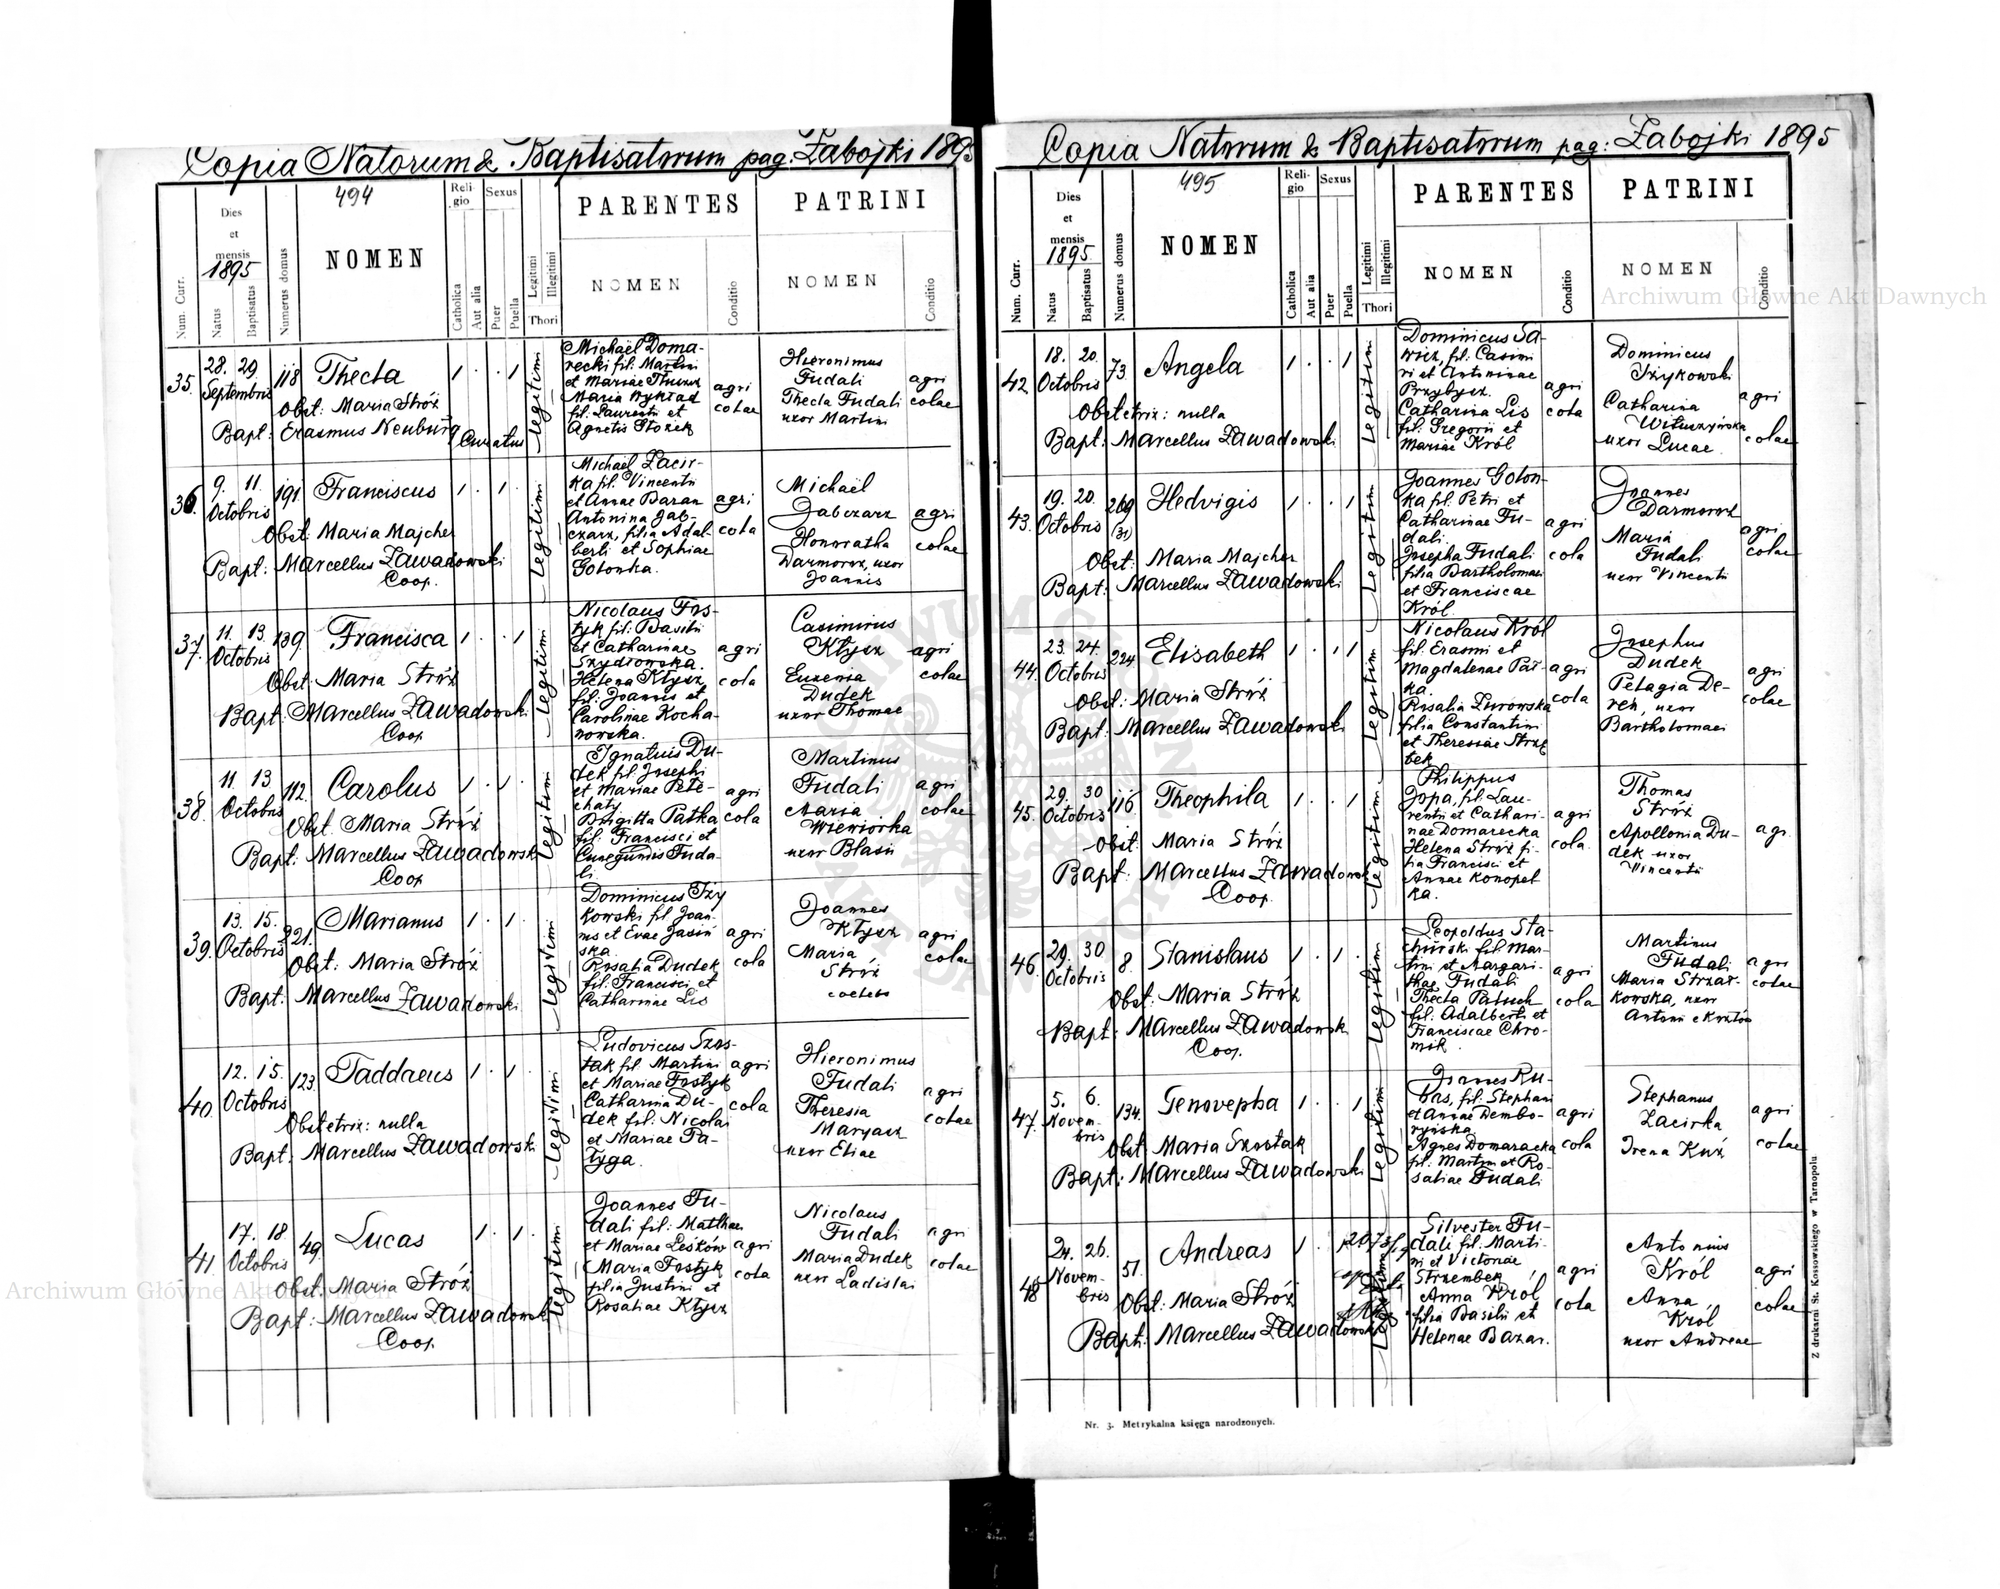 Copia Natorum & Baptisatorum pag. Zabojki 1895
494
Num. Curr.
Dies et mensis
1895
Natus
Baptisatus
Numerus domus
NOMEN
Religio
Catholica
Aut alia
Sexus
Puer
Puella
Legitimi
Illegitimi
Thori
PARENTES
NOMEN
Conditio
PATRINI
NOMEN
Conditio
35.
28. 29.
Septembris
118
Thecla
1 . . 1
Obst: Maria Stróż
Bapt: Erasmus Neuburg Curatus
Legitimi
Michaël Doma-
recki fil: Martini
et Mariae
Maria Wykrad
fil: Laurentii et
Agnetis Stożek
agri
colae
Hieronimus
Fudali
Thecla Fudali
uxor Martini
agri
colae
36.
9. 11.
Octobris
191.
Franciscus
1 . 1 .
Obst. Maria Majcher
Bapt: Marcellus Zawadowski
Coop.
Legitimi
Michaël Zacir-
ka fil. Vincentii
et Annae Baran
Antonina Gab-
czarz, filia Adal-
berti et Sophiae
Golonka.
agri
cola
Michaël
Gabczarz
Honoratha
Darmorosz, uxor
Joannis
agri
colae
37.
11. 13.
Octobris
139.
Francisca
1 . . 1
Obst. Maria Stróż
Bapt: Marcellus Zawadowski
Coop.
Legitimi
Nicolaus Fos-
tyk fil: Basilii
et Catharinae
Szydłowska.
Helena Kłysz
fil: Joannis et
Carolinae Kocha-
nowska.
agri
cola
Casimirus
Kłysz
Euzenia
Dudek
uxor Thomae
agri
colae
38.
11. 13
Octobris
112.
Carolus
1 . 1 .
Obst. Maria Stróż
Bapt: Marcellus Zawadowski
Coop
Legitimi
Ignatius Du-
dek fil Josephi
et Mariae Pete-
chaty
Brigitta Patka
fil: Francisci et
Cunegundis Fuda-
li.
agri
cola
Martinus
Fudali
Maria
Wiewiórka
uxor Blasii
agri
colae
39.
13. 15.
Octobris
221.
Marianus
1 . 1 .
Obst: Maria Stróż
Bapt: Marcellus Zawadowski
Legitimi
Dominicus Tży
kowski fil Joan-
nis et Evae Jasiń
ska.
Rosalia Dudek
fil: Francisci et
Catharinae Lis
agri
cola
Joannes
Kłysz
Maria
Stróż
coelebs
agri
colae
40.
12. 15.
Octobris
123
Taddaeus
1 . 1 .
Obstetrix: nulla
Bapt: Marcellus Zawadowski
Legitimi
Ludovicus Szos-
tak fil. Martini
et Mariae Fostyk
Catharina Du-
dek fil: Nicolai
et Mariae Pa-
łyga.
agri
cola
Hieronimus
Fudali
Theresia
Maryasz
uxor Eliae
agri
colae
41.
17. 18
Octobris
49.
Lucas
1 . 1 .
Obst: Maria Stróż
Bapt: Marcellus Zawadowski
Coop.
Legitimi
Joannes Fu-
dali fil: Mathaei
et Mariae Leśków
Maria Fostyk
filia Justini et
Rosaliae Kłysz
agri
cola
Nicolaus
Fudali
Maria Dudek
uxor Ladislai
agri
colae
Copia Natorum & Baptisatorum pag: Zabojki 1895
495
Num. Curr.
Dies et mensis
1895
Natus
Baptisatus
Numerus domus
NOMEN
Religio
Catholica
Aut alia
Sexus
Puer
Puella
Legitimi
Illegitimi
Thori
PARENTES
NOMEN
Conditio
PATRINI
NOMEN
Conditio
42.
18. 20.
Octobris
73.
Angela
1 . . 1
Obstetrix: nulla
Bapt: Marcellus Zawadowski
Legitimi
Dominicus Sa-
wicz, fil: Casimi
ri et Antoninae
Przybysz.
Catharina Lis
fil: Gregorii et
Mariae Król
agri
cola
Dominicus
Tżykowski
Catharina
uxor Lucae.
agri
colae
43.
19. 20.
Octobris
209
(31)
Hedvigis
1 . . 1
Obst: Maria Majcher
Bapt: Marcellus Zawadowski
Legitimi
Joannes Golon-
ka fil. Petri et
Catharinae Fu-
dali.
Josepha Fudali
filia Bartholomaei
et Franciscae
Król.
agri
cola
Joannes
Darmorosz
Maria
Fudali
uxor Vincentii
agri
colae
44.
23. 24.
Octobris
224
Elisabeth
1 . . 1
Obst: Maria Stróż
Bapt: Marcellus Zawadowski
Legitimi
Nicolaus Król
fil: Erasmi et
Magdalenae Pał-
ka.
Rosalia Żurowska
filia Constantini
et Theresiae Strzę
bek
agri
cola
Josephus
Dudek
Pelagia De-
reń, uxor
Bartholomaei
agri
colae
45.
29. 30
Octobris
116
Theophila
1 . . 1
Obst. Maria Stróż
Bapt: Marcellus Zawadowski
Coop.
Legitimi
Philippus
Gopa, fil: Lau-
rentii et Cathari-
nae Domarecka
Helena Stróż fi-
lia Francisci et
Annae Konopel
ka.
agri
cola
Thomas
Stróż
Apollonia Du-
dek uxor
Vincentii
agr.
46.
29. 30
Octobris
8.
Stanislaus
1 . 1 .
Obst: Maria Stróż
Bapt: Marcellus Zawadowski
Coop.
Legitimi
Leopoldus Sta-
churski fil: Mar-
tini et Margari-
thae Fudali
Thecla Patuch
fil: Adalberti et
Franciscae Chro-
mik.
agri
cola
Martinus
Fudali
Maria Strzał-
kowska, uxor
Antonii
agri
colae
47.
5. 6.
Novem-
bris
134.
Genovepha
1 . . 1
Obst: Maria Szostak
Bapt: Marcellus Zawadowski
Legitimi
Joannes Ku-
bas, fil: Stephani
et Annae Dembo-
ryńska
Agnes Domaracka
fil: Martini et Ro-
saliae Fudali
agri
cola
Stephanus
Zacirka
Irena Kuż
agri
colae
48
24. 26.
Novem-
bris
51.
Andreas
1 .
Obst: Maria Stróż
Bapt: Marcellus Zawadowski
Silvester Fu-
dali fil: Marti-
ni et Victoriae
Strzembek,
Anna Król
filia Basilii et
Helenae Bazar.
agri
cola
Antonius
Król
Anna
Król
uxor Andreae
agri
colae
Nr. 3. Metrykalna księga narodzonych.
Z drukarni St. Kossowskiego w Tarnopolu
Archiwum Główne Akt Dawnych
Archiwum Główne Akt